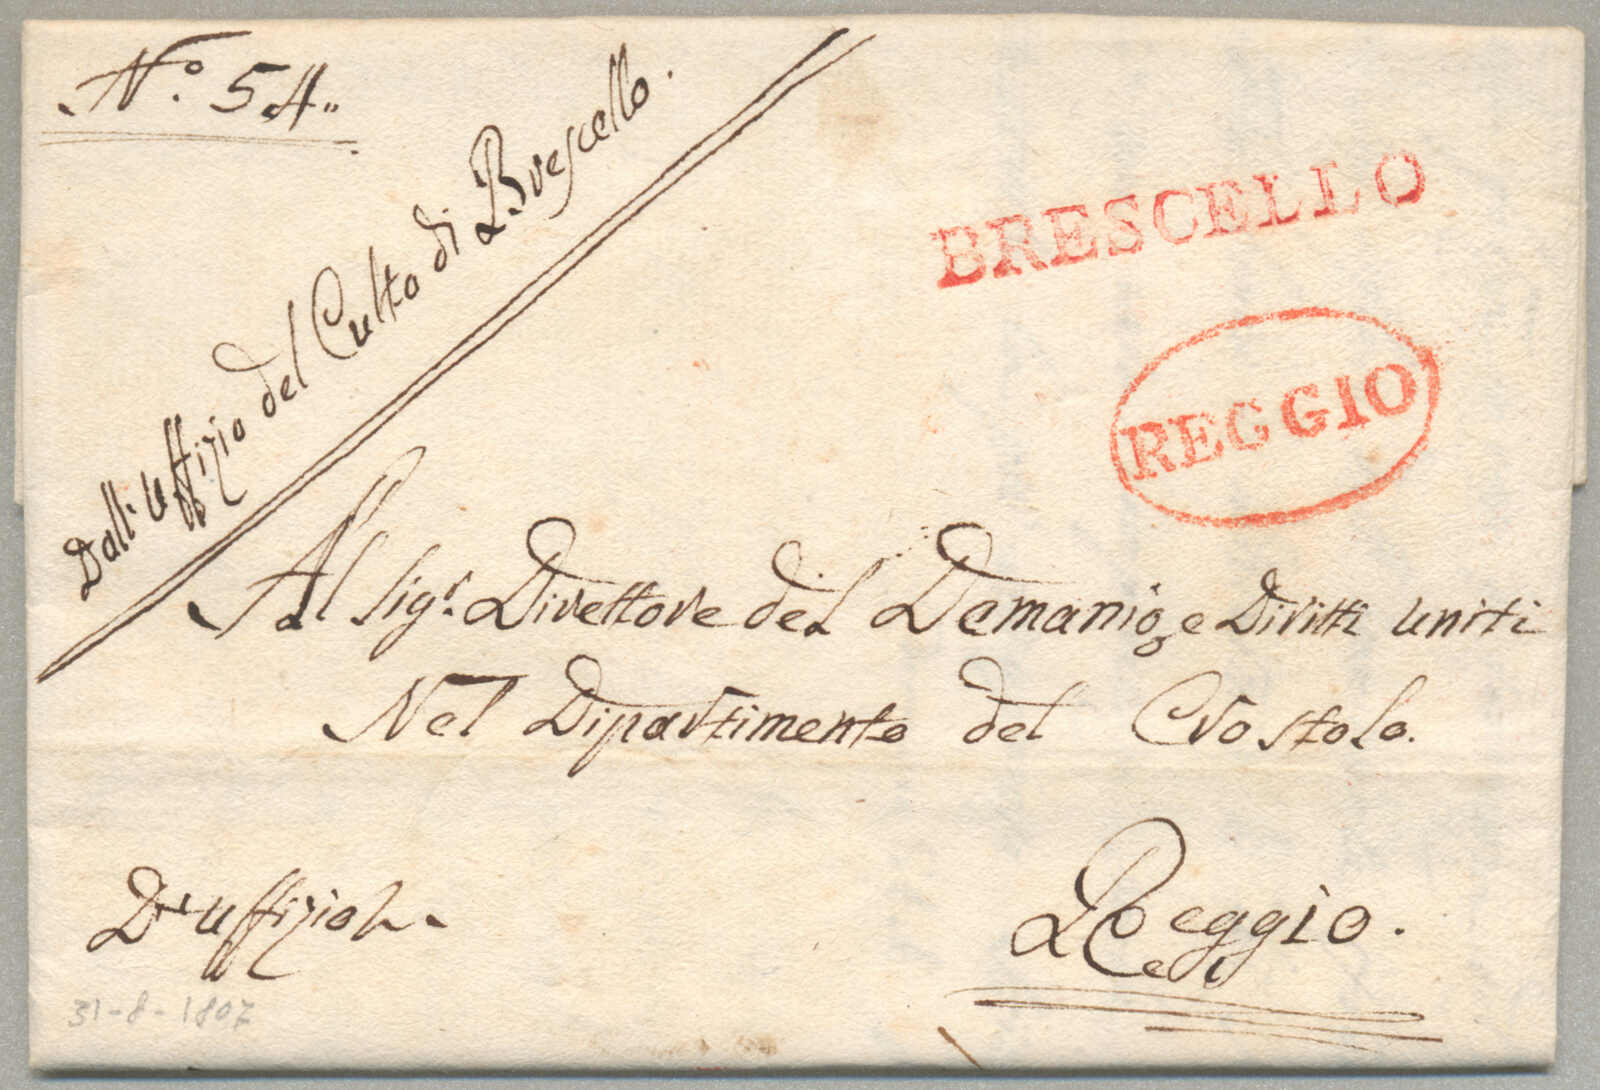 N.° 54..
Dall' Uffizio del Culto di Brescello.
BRESCELLO
REGGIO
Al Sig.r Direttore del Demanio, e Diritti uniti
Nel Dipartimento del Crostolo.
D'uffizio
Reggio.
31-8-1807